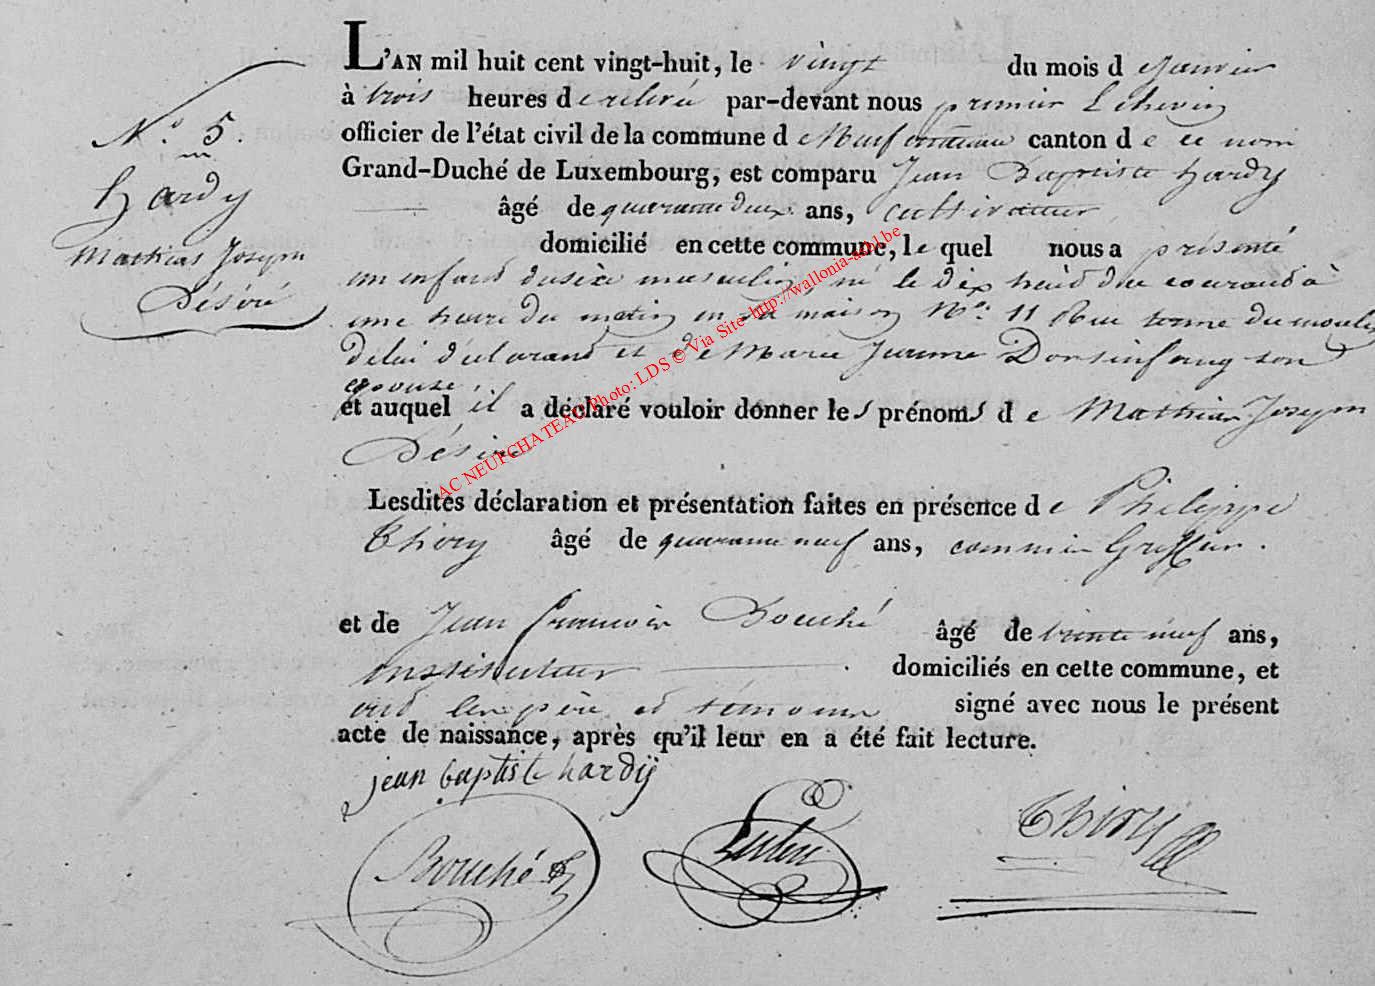 L'AN mil huit cent vingt-huit, le vingt du mois de Janvier
à trois heures de relevée par-devant nous premier Echevin
officier de l'état civil de la commune de Neufchateau canton de ce nom
Grand-Duché de Luxembourg, est comparu Jean Baptiste Hardy
âgé de quarante deux ans, cultivateur
domicilié en cette commune, le quel nous a présenté
un enfant du sexe masculin, né le dix huit du courant à
une heure du matin en sa maison No. 11 Rue terme du moulin
de lui déclarant et de Marie Jeanne Dorsinfang son
epouse,
et auquel il a déclaré vouloir donner les prénoms de Mathias Joseph
Désiré
Lesdites déclaration et présentation faites en présence de Philippe
Thiry âgé de quarante neuf ans, commis Greffier.
et de Jean françois Bouché âgé de trente neuf ans,
instituteur domiciliés en cette commune, et
ont les père et témoins signé avec nous le présent
acte de naissance, après qu'il leur en a été fait lecture.
jean baptiste hardÿ
Bouché
Thiry
No. 5.
Hardy
Mathias Joseph
Désiré
AC NEUFCHATEAU Photo: LDS © Via Site http://wallonia-asbl.be